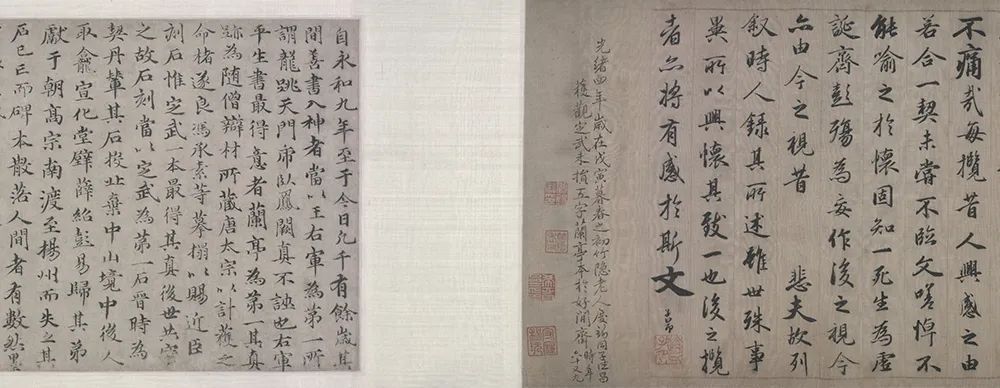 不痛哉每攬昔人興感之由
若合一契未嘗不臨文嗟悼不
能喻之於懷固知一死生為虛
誕齊彭殤為妄作後之視今
亦由今之視昔 悲夫故列
敘時人錄其所述雖世殊事
異所以興懷其致一也後之攬
者亦將有感於斯文
光緒四年歲在戊寅暮春之初竹隱老人
獲觀定武未損五字蘭亭本於好閒齋時年六十又九
自永和九年至于今日凡千有餘歲其
間善書入神者當以王右軍為第一所
謂龍跳天門虎臥鳳闕真不誣也右軍
平生書最得意者蘭亭為第一其真
跡為隨僧辯材所藏唐太宗以計獲之
命褚遂良馮承素等摹搨以賜近臣
刻石惟定武一本最得其真後世共宗
之故石刻當以定武為第一石晉時為
契丹輦其石投北棄中山境中後人
取龕宣化堂壁薛紹彭易歸其弟
獻于朝高宗南渡至楊州而失之其
石已亡而碑本散落人間者有數然